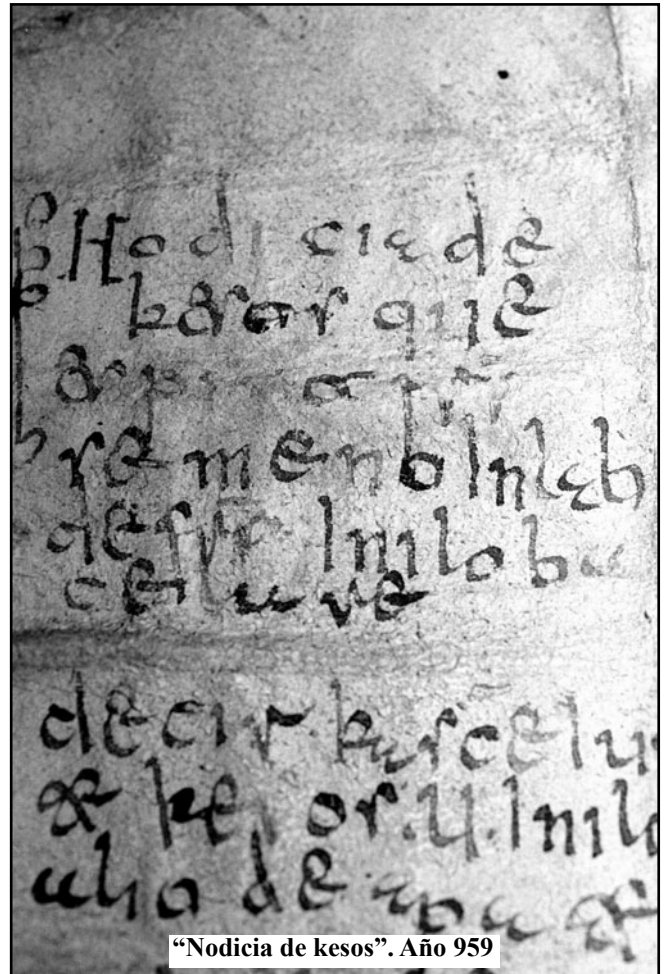 Nodicia de
kesos que
espisit fr
semeno Inlab
de frs Inilo ba
celare
decirka sce iu
& kesos .U. Inilo
alio de apat
“Nodicia de kesos”. Año 959